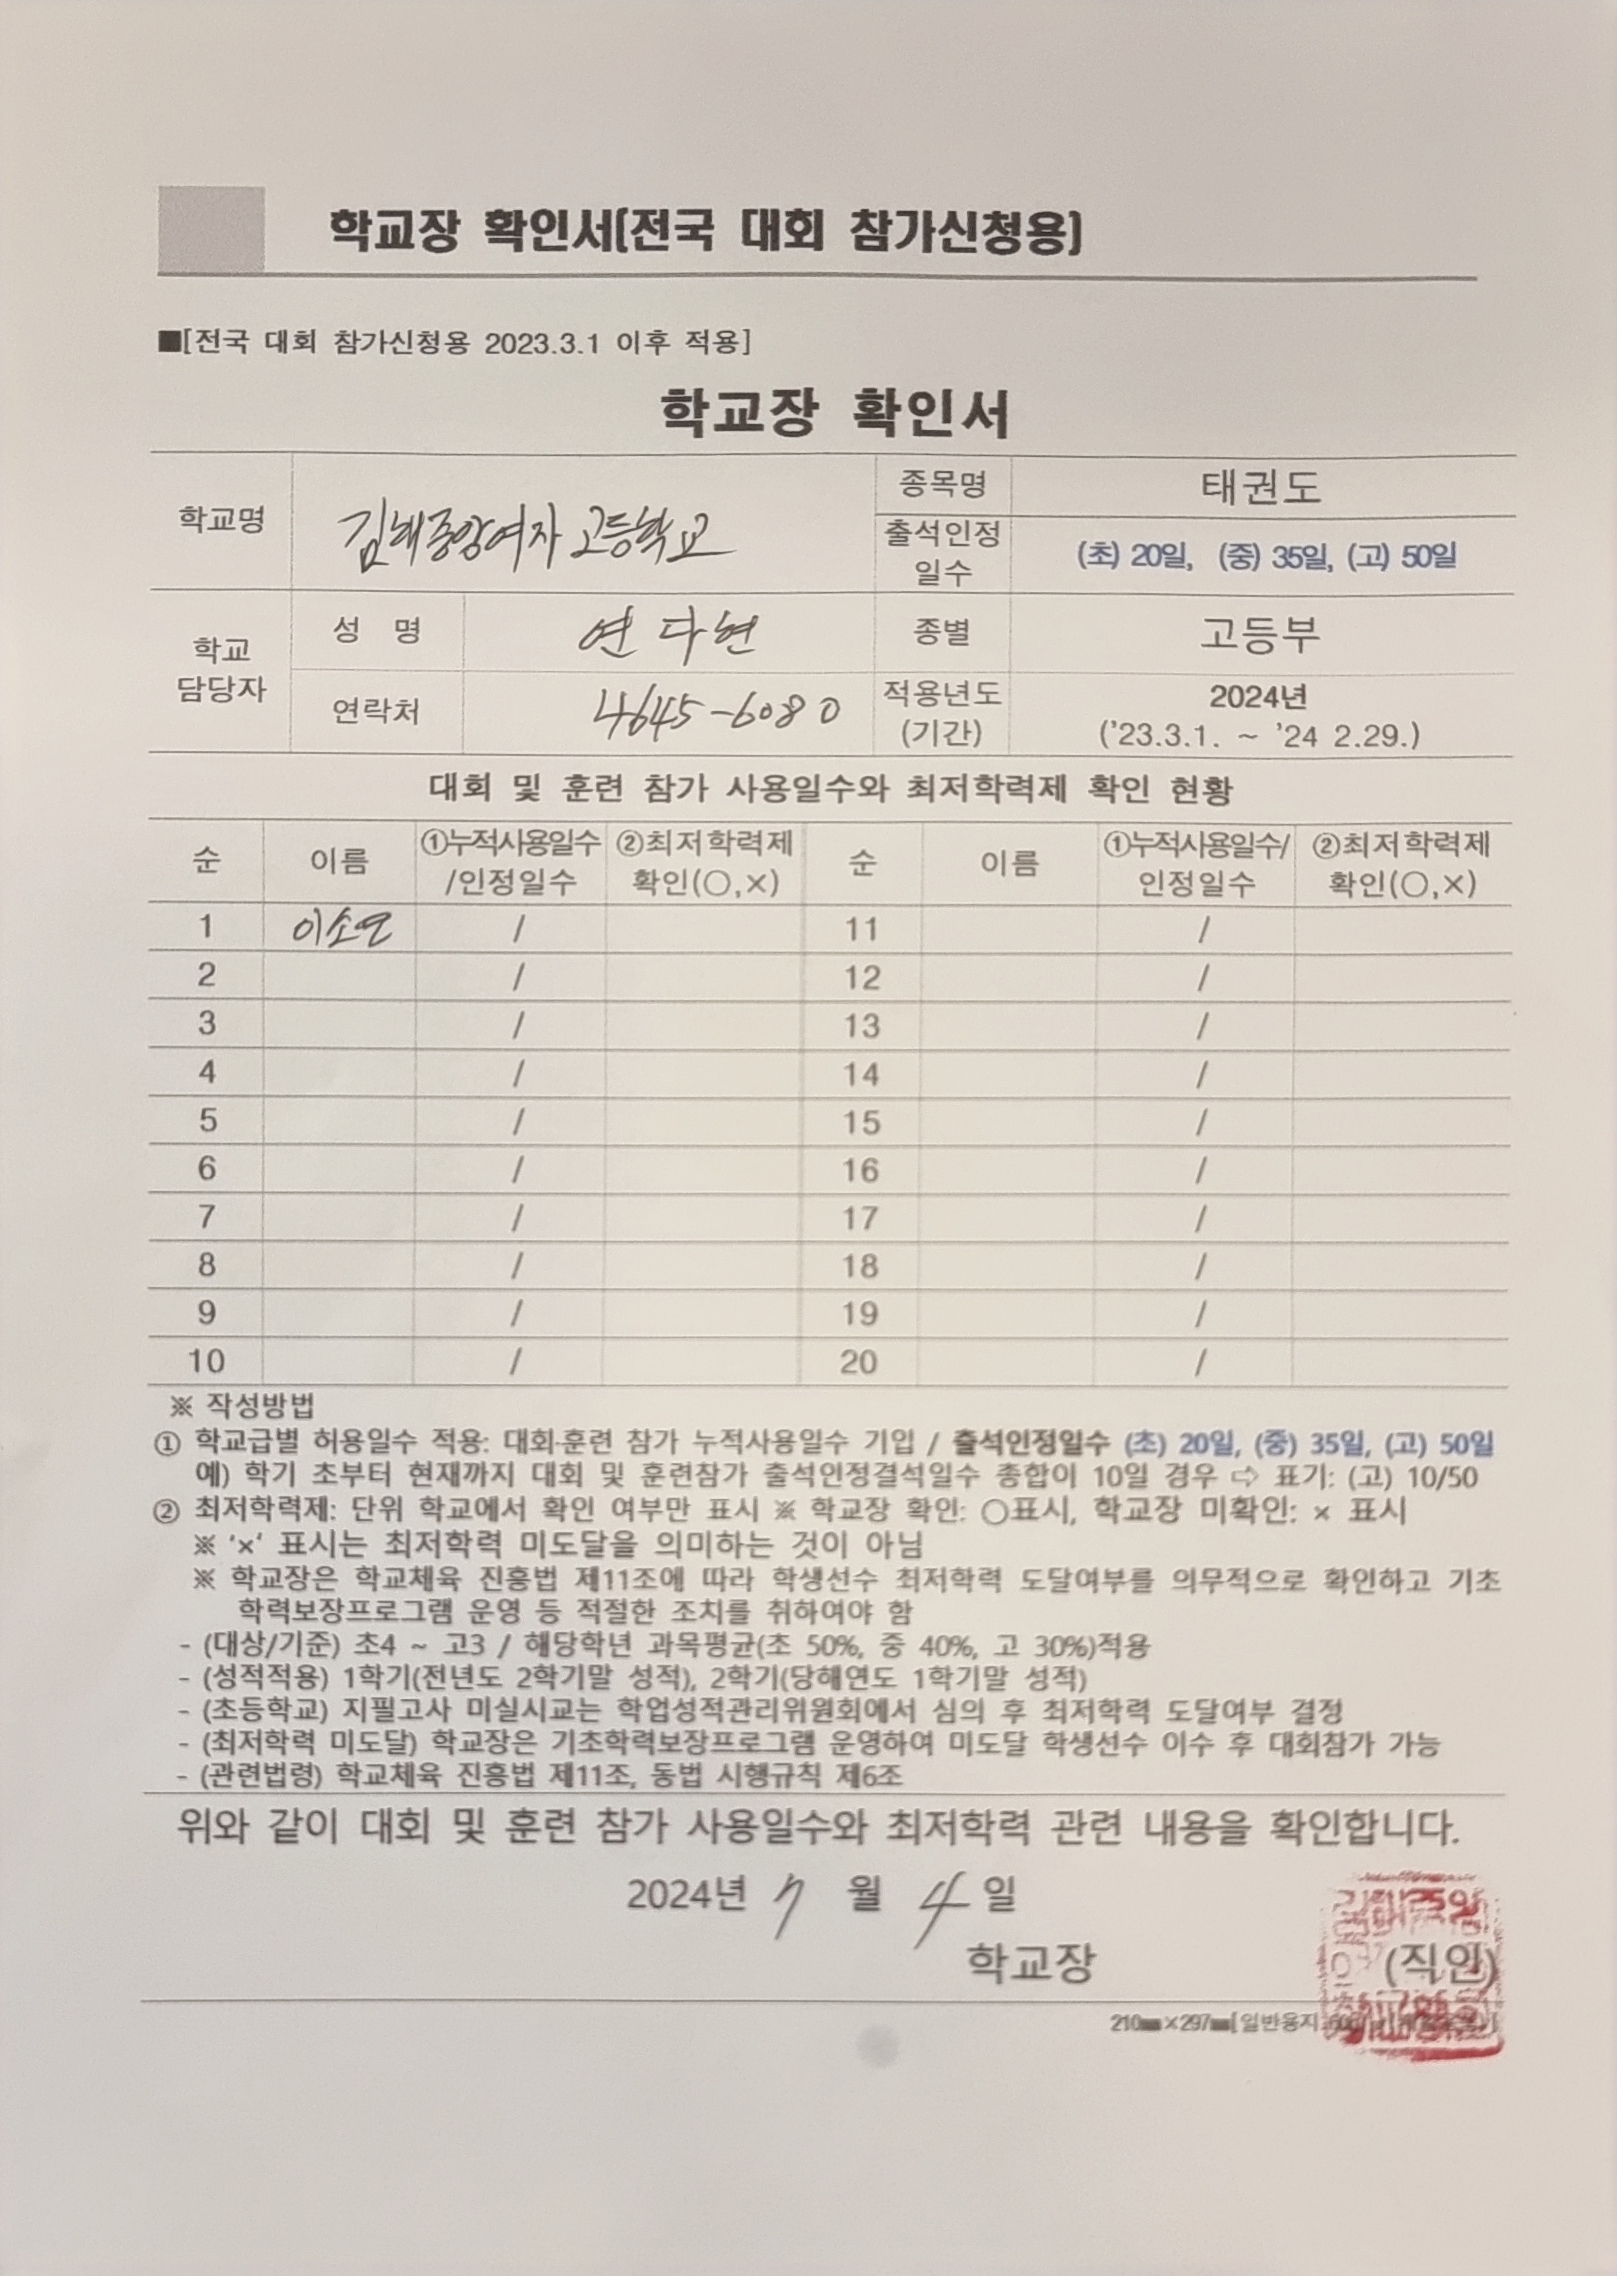 학교장 확인서(전국 대회 참가신청용)
■[전국 대회 참가신청용 2023.3.1 이후 적용]
학교장 확인서
학교명 김해중앙여자고등학교 종목명 태권도
출석인정 일수 (초) 20일, (중) 35일, (고) 50일
학교 담당자 성 명 연다현 종별 고등부
연락처 4645-6080 적용년도 (기간) 2024년 ('23.3.1. ~ '24 2.29.)
대회 및 훈련 참가 사용일수와 최저학력제 확인 현황
순 이름 ①누적사용일수/인정일수 ②최저학력제 확인(○,×) 순 이름 ①누적사용일수/인정일수 ②최저학력제 확인(○,×)
1 이소연 / 11 /
2 / 12 /
3 / 13 /
4 / 14 /
5 / 15 /
6 / 16 /
7 / 17 /
8 / 18 /
9 / 19 /
10 / 20 /
※ 작성방법
① 학교급별 허용일수 적용: 대회·훈련 참가 누적사용일수 기입 / 출석인정일수 (초) 20일, (중) 35일, (고) 50일
예) 학기 초부터 현재까지 대회 및 훈련참가 출석인정결석일수 총합이 10일 경우 ⇨ 표기: (고) 10/50
② 최저학력제: 단위 학교에서 확인 여부만 표시 ※ 학교장 확인: ○표시, 학교장 미확인: × 표시
※ '×' 표시는 최저학력 미도달을 의미하는 것이 아님
※ 학교장은 학교체육 진흥법 제11조에 따라 학생선수 최저학력 도달여부를 의무적으로 확인하고 기초
학력보장프로그램 운영 등 적절한 조치를 취하여야 함
- (대상/기준) 초4 ~ 고3 / 해당학년 과목평균(초 50%, 중 40%, 고 30%)적용
- (성적적용) 1학기(전년도 2학기말 성적), 2학기(당해연도 1학기말 성적)
- (초등학교) 지필고사 미실시교는 학업성적관리위원회에서 심의 후 최저학력 도달여부 결정
- (최저학력 미도달) 학교장은 기초학력보장프로그램 운영하여 미도달 학생선수 이수 후 대회참가 가능
- (관련법령) 학교체육 진흥법 제11조, 동법 시행규칙 제6조
위와 같이 대회 및 훈련 참가 사용일수와 최저학력 관련 내용을 확인합니다.
2024년 7 월 4 일
학교장 (직인)
210㎜×297㎜[일반용지